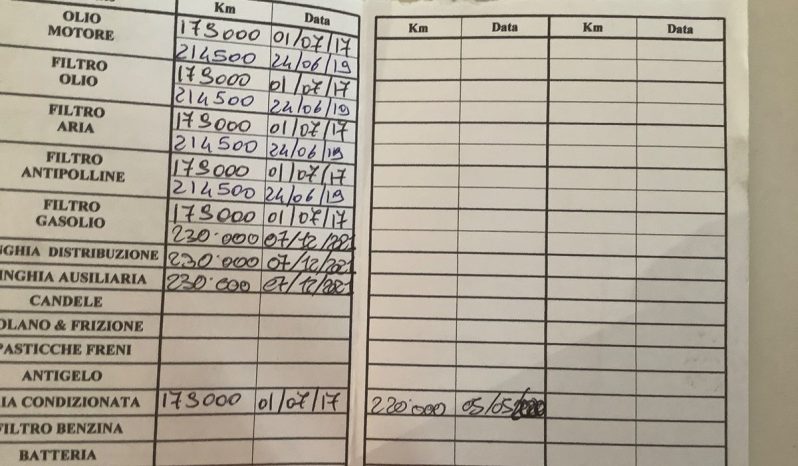 Km Data Km Data Km Data
OLIO MOTORE 173000 01/07/17
214500 24/06/19
FILTRO OLIO 173000 01/07/17
214500 24/06/19
FILTRO ARIA 173000 01/07/17
214500 24/06/19
FILTRO ANTIPOLLINE 173000 01/07/17
214500 24/06/19
FILTRO GASOLIO 173000 01/07/17
230.000 07/12/2021
NGHIA DISTRIBUZIONE 230.000 07/12/2021
INGHIA AUSILIARIA 230.000 07/12/2021
CANDELE
OLANO & FRIZIONE
PASTICCHE FRENI
ANTIGELO
IA CONDIZIONATA 173000 01/07/17 220.000 05/05/2020
FILTRO BENZINA
BATTERIA